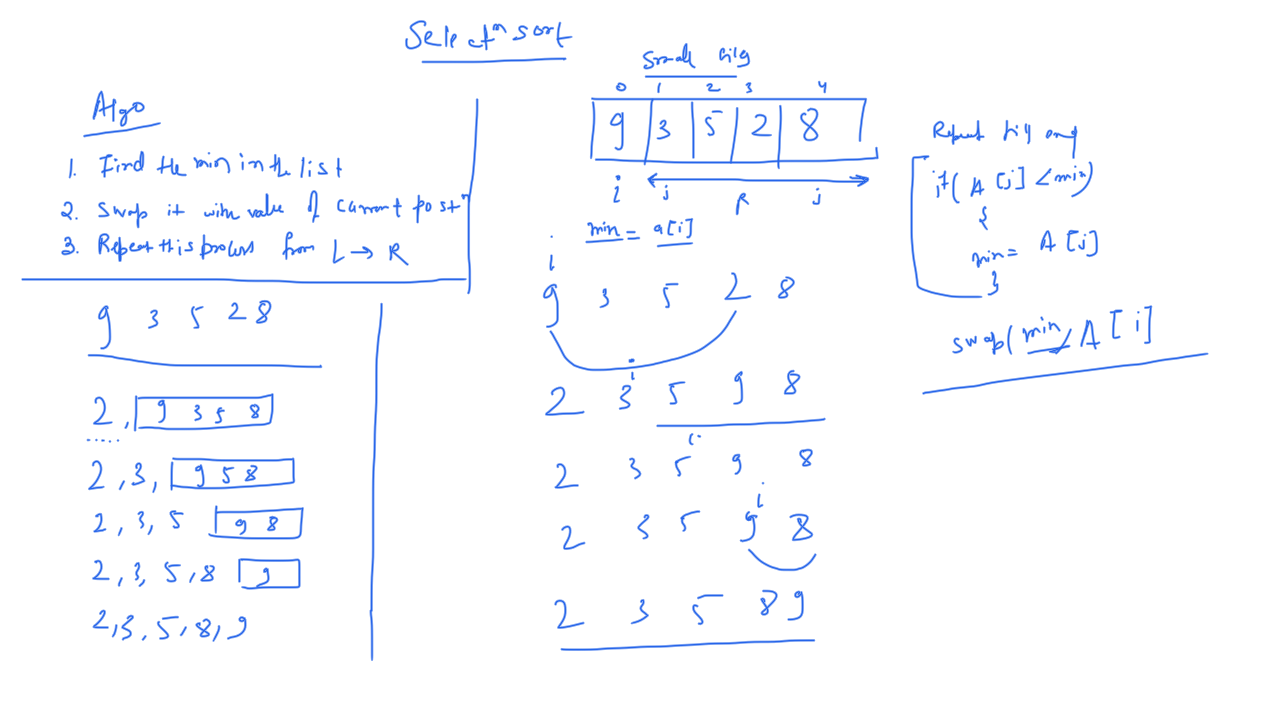 Selectⁿ sort
Algo
1. Find the min in the list
2. swap it with value of current postⁿ
3. Repeat this process from L → R
9 3 5 2 8
2, 9 3 5 8
2, 3, 9 5 8
2, 3, 5 9 8
2, 3, 5, 8 9
2, 3, 5, 8, 9
Small
0 1 2 3 4
9 3 5 2 8
i j R j
min = a[i]
i
9 3 5 2 8
i
2 3 5 9 8
i
2 3 5 9 8
i
2 3 5 9 8
2 3 5 8 9
Repeat
if( A [j] < min)
{
min = A [j]
}
swap( min, A [i]